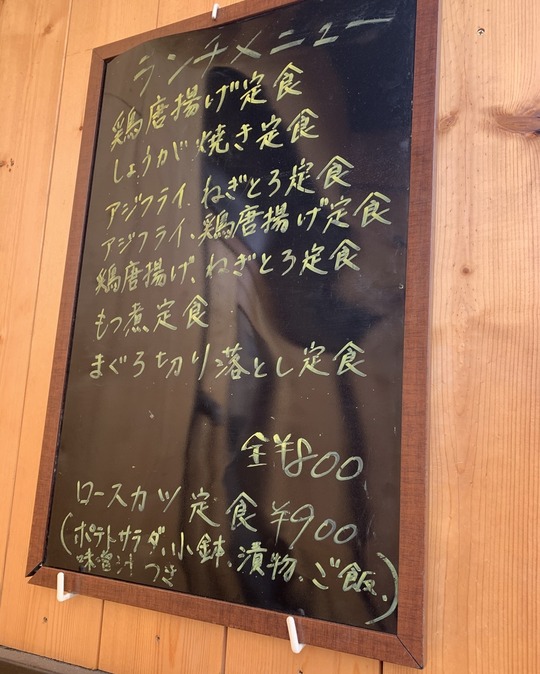 ランチメニュー
鶏唐揚げ定食
しょうが焼き定食
アジフライ、ねぎとろ定食
アジフライ、鶏唐揚げ定食
鶏唐揚げ、ねぎとろ定食
もつ煮定食
まぐろ切り落とし定食
全¥800
ロースカツ定食¥900
(ポテトサラダ、小鉢、漬物、ご飯、
味噌汁つき)